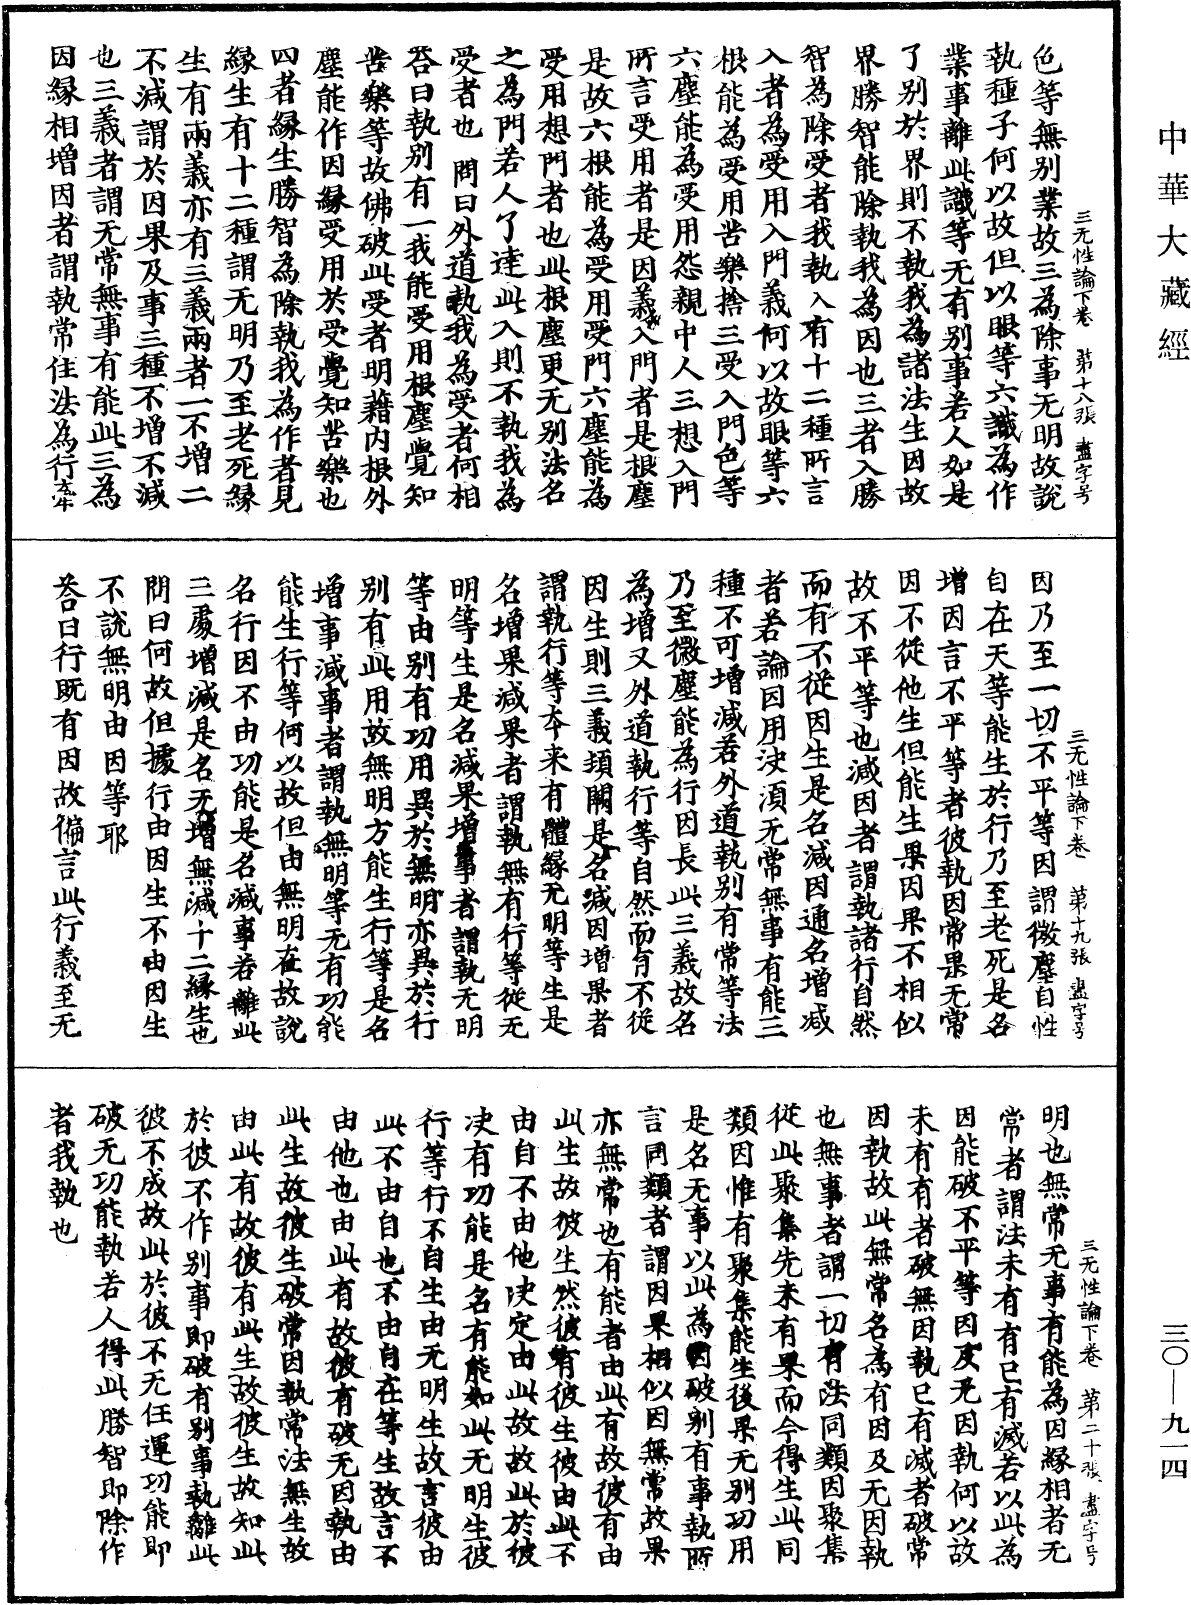 中華大藏經
三无性論下卷 第十八張 盡字号
色等無别業故三為除事无明故說
執種子何以故但以眼等六識為作
業事離此識等无有别事若人如是
了别於界則不執我為諸法生因故
界勝智能除執我為因也三者入勝
智為除受者我執入有十二種所言
入者為受用入門義何以故眼等六
根能為受用苦樂捨三受入門色等
六塵能為受用怨親中人三想入門
所言受用者是因義入門者是根塵
是故六根能為受用受門六塵能為
受用想門者也此根塵更无别法名
之為門若人了達此入則不執我為
受者也 問曰外道執我為受者何相
荅曰執别有一我能受用根塵覺知
苦樂等故佛破此受者明藉内根外
塵能作因緣受用於受覺知苦樂也
四者緣生勝智為除執我為作者見
緣生有十二種謂无明乃至老死緣
生有兩義亦有三義兩者一不增二
不減謂於因果及事三種不增不減
也三義者謂无常無事有能此三為
因緣相增因者謂執常住法為行夲
三无性論下卷 第十九張 盡字号
因乃至一切不平等因謂微塵自性
自在天等能生於行乃至老死是名
增因言不平等者彼執因常果无常
因不從他生但能生果因果不相似
故不平等也減因者謂執諸行自然
而有不從因生是名減因通名增減
者若論因用决須无常無事有能三
種不可增減若外道執别有常等法
乃至微塵能為行因長此三義故名
為增又外道執行等自然而有不從
因生則三義頓闕是名減因增果者
謂執行等夲来有體緣无明等生是
名增果減果者謂執無有行等從无
明等生是名減果增事者謂執无明
等由别有功用異於無明亦異於行
别有此用故無明方能生行等是名
增事減事者謂執無明等无有功能
能生行等何以故但由無明在故說
名行因不由功能是名減事若離此
三處增減是名无增無減十二緣生也
問曰何故但據行由因生不由因生
不說無明由因等耶
荅曰行既有因故徧言此行義至无
三无性論下卷 第二十張 盡字号
明也無常无事有能為因緣相者无
常者謂法未有有已有滅若以此為
因能破不平等因及无因執何以故
未有有者破無因執已有滅者破常
因執故此無常名為有因及无因執
也無事者謂一切有法同類因聚集
從此聚集先未有果而今得生此同
類因惟有聚集能生後果无别功用
是名无事以此為因破别有事執所
言同類者謂因果相似因無常故果
亦無常也有能者由此有故彼有由
此生故彼生然彼有彼生彼由此不
由自不由他决定由此故故此於彼
决有功能是名有能如此无明生彼
行等行不自生由无明生故言彼由
此不由自也不由自在等生故言不
由他也由此有故彼有破无因執由
此生故彼生破常因執常法無生故
由此有故彼有此生故彼生故知此
於彼不作别事即破有别事執離此
彼不成故此於彼不无任運功能即
破无功能執若人得此勝智即除作
者我執也
三〇—九一四